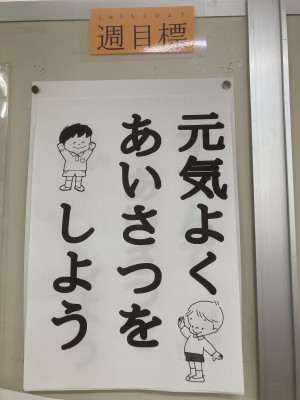 しゅうもくひょう
週目標
元気よく
あいさつを
しよう